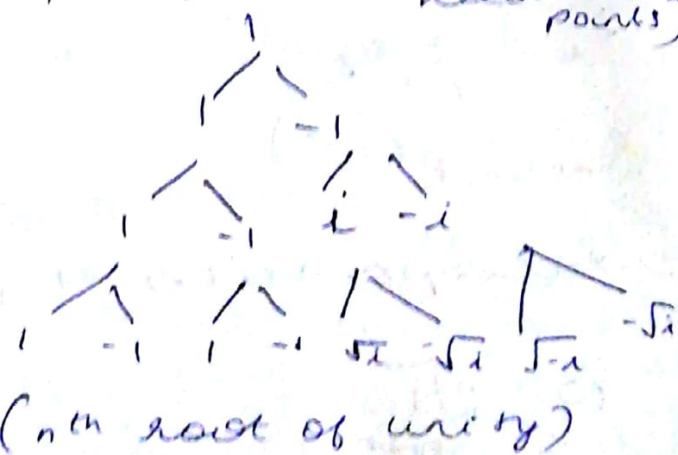 points)
1
1 -1
1 -1 i -i
1 -1 1 -1 √i -√i √-i -√i
(nth root of unity)